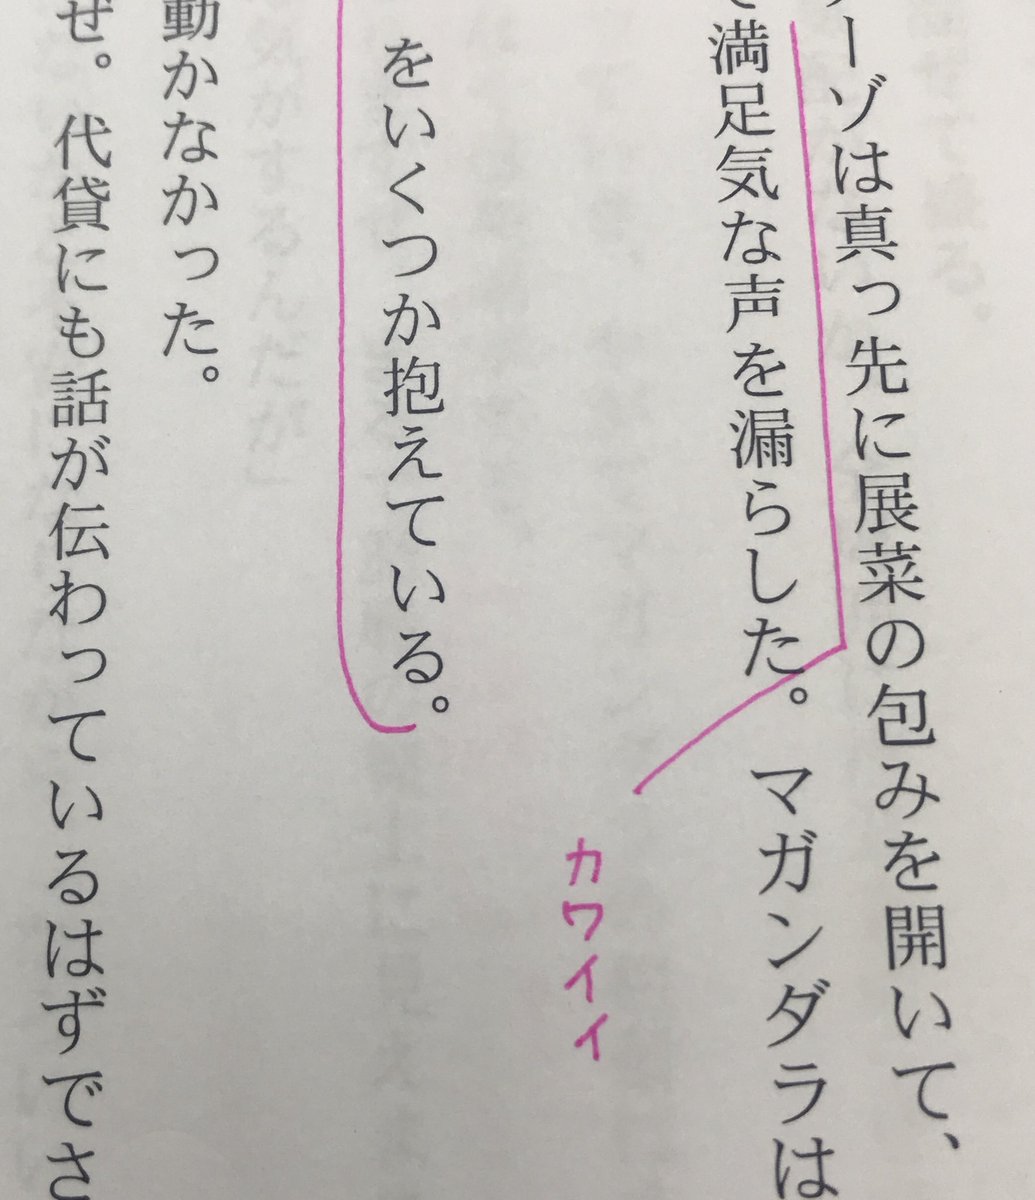 ーゾは真っ先に展菜の包みを開いて、
満足気な声を漏らした。マガンダラは
カワイイ
をいくつか抱えている。
動かなかった。
ぜ。代貸にも話が伝わっているはずでさ